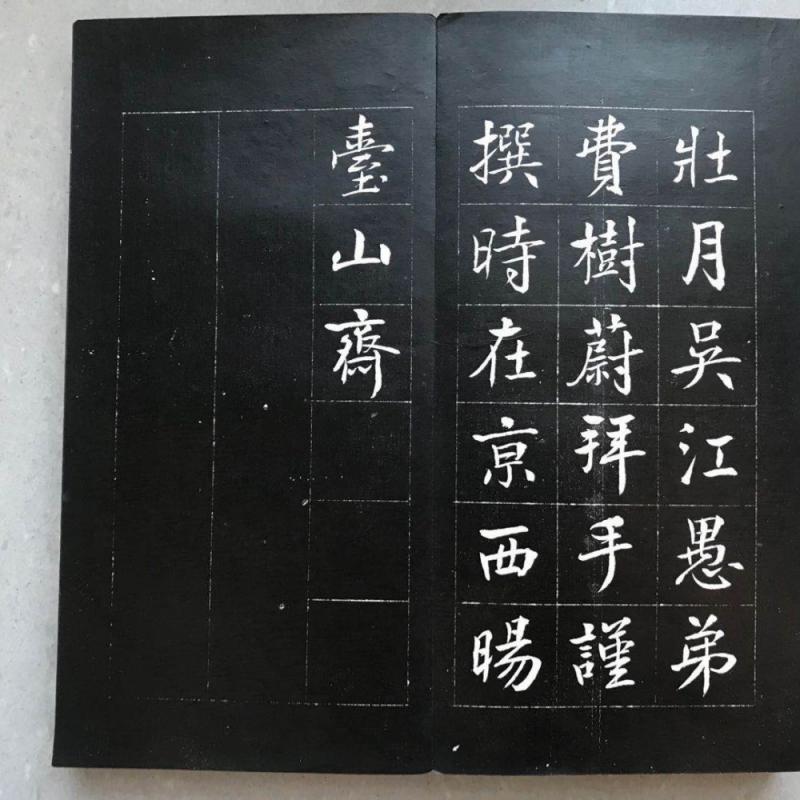 壯月吳江愚弟
費樹蔚拜手謹
撰時在京西暘
臺山齋